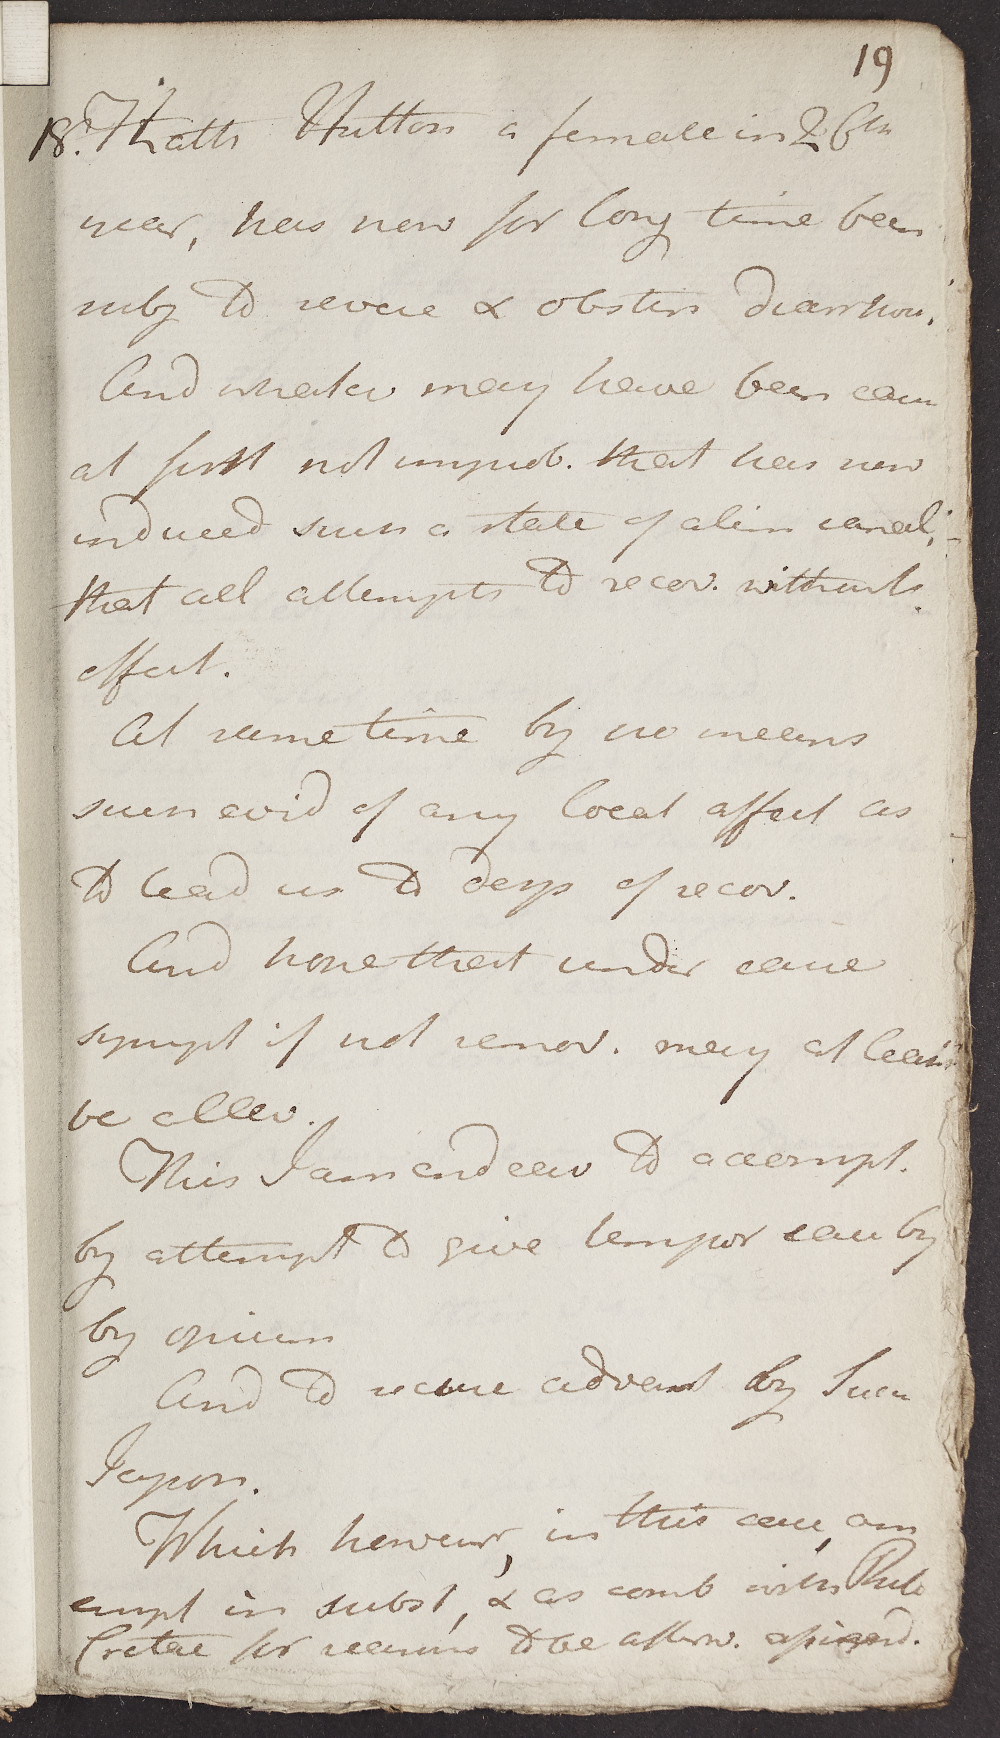 19
18. Kath Hutton a female in 26th
year, has now for long time been
subj to severe & obstin diarrhoe.
And whatev may have been cau
at first not improb. that has now
induced such a state of alim canal,
that all attempts to recov. without
effect.
At same time by no means
such evid of any local affect as
to lead us to desp of recov.
And hope that under care
sympt if not remov. may at least
be allev.
This I am endeav to accompt.
by attempt to give tempor
by opium
And to secure advant by Succ
Japon.
Which however, in this case, am
empt in subst, & as comb with Pulv
Cretae for reasons to be afterw. assigned.